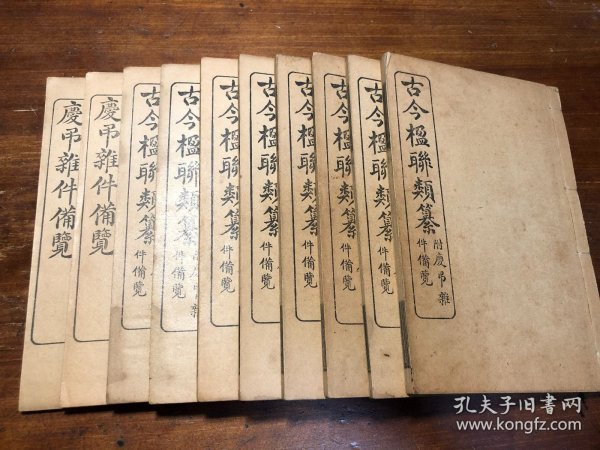 古今楹聯類纂 附慶弔雜件備覽
古今楹聯類纂 件備覽
古今楹聯類纂 件備覽
古今楹聯類纂 件備覽
古今楹聯類纂 件備覽
古今楹聯類纂 件備覽
古今楹聯類纂 附慶弔雜件備覽
古今楹聯類纂 件備覽
慶弔雜件備覽
慶弔雜件備覽
孔夫子旧书网
www.kongfz.com